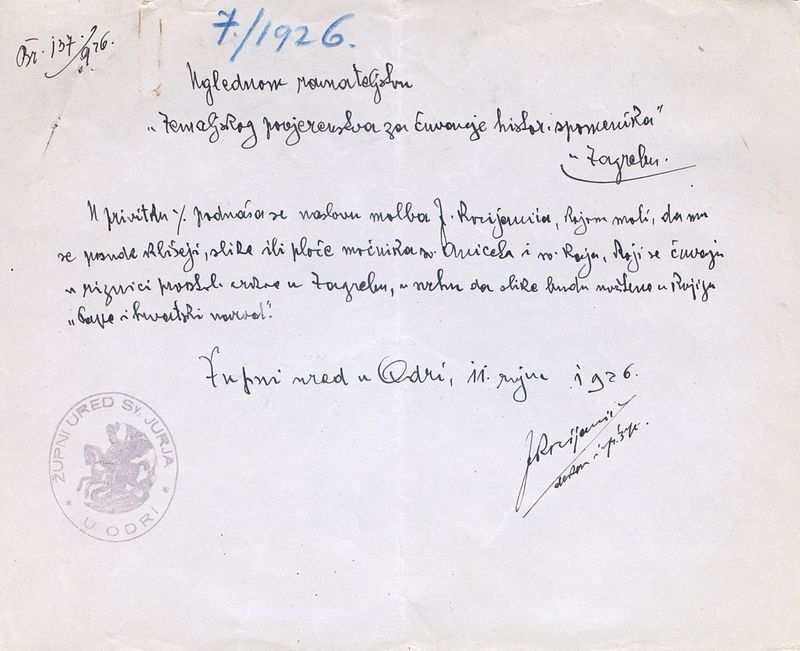 7./1926.
Br. 137/926.
Uglednom ravnateljstvu
„Zemaljskog povjerenstva za čuvanje histor. spomenika"
u Zagrebu.
U privitku ·/. podnaša se naslovu molba J. Kocijanića, kojom moli, da mu
se ponude klišeji, slike ili ploče moćnika sv. Aniceta i sv. Kaja, koji se čuvaju
u riznici prvostol. crkve u Zagrebu, u svrhu da slike budu uvrštene u knjigu
„Pape i hrvatski narod".
Župni ured u Odri, 11. rujna 1926.
J Kocijanić
ŽUPNI URED SV. JURJA
* U ODRI *